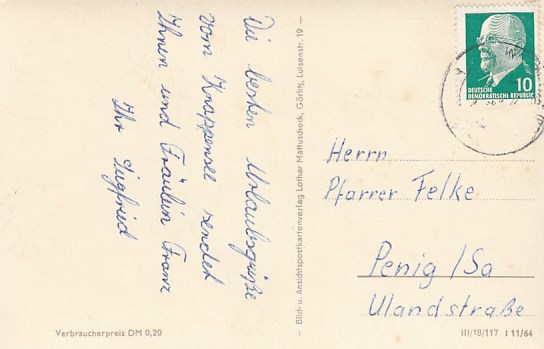 Die besten Urlaubsgrüße
vom Knappensee sendet
Ihnen und Fräulein Franz
Ihr Siegfried
Verbraucherpreis DM 0,20
— Bild- u. Ansichtspostkartenverlag Lothar Mattuscheck, Görlitz, Luisenstr. 19 —
10
DEUTSCHE
DEMOKRATISCHE REPUBLIK
Herrn
Pfarrer Felke
Penig /Sa
Ulandstraße
III/18/117 I 11/64